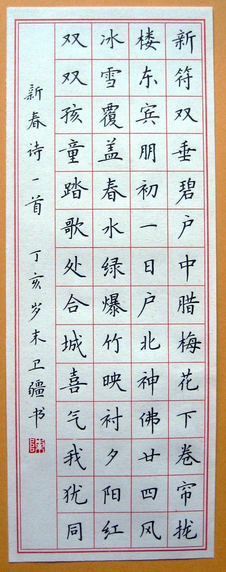 新符双垂碧户中腊梅花下卷帘拢
楼东宾朋初一日户北神佛廿四风
冰雪覆盖春水绿爆竹映衬夕阳红
双双孩童踏歌处合城喜气我犹同
新春诗一首 丁亥岁末卫疆书